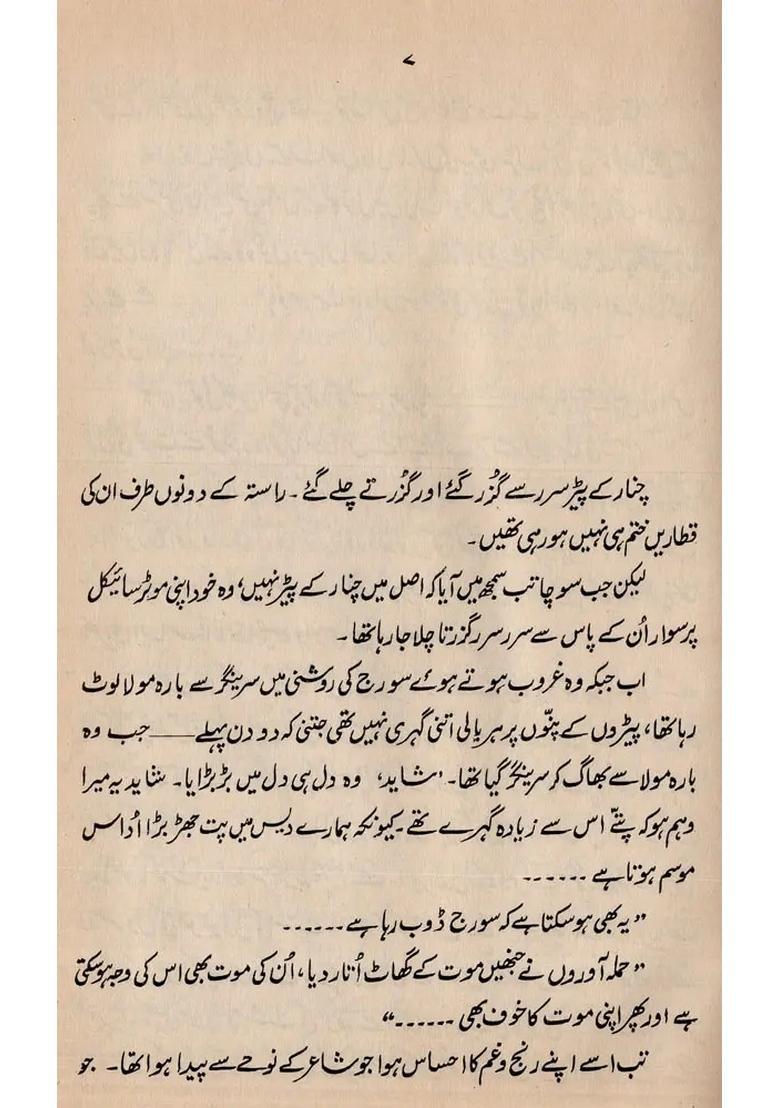 ۷
چنار کے پیڑ سرر سے گزُر گئے اور گزُرتے چلے گئے ۔ راستہ کے دونوں طرف ان کی
قطاریں ختم ہی نہیں ہو رہی تھیں۔
لیکن جب سوچا تب سمجھ میں آیا کہ اصل میں چنار کے پیڑ نہیں، وہ خود اپنی موٹر سائیکل
پر سوار اُن کے پاس سے سرر سرر گزرتا چلا جا رہا تھا ۔
اب جبکہ وہ غروب ہوتے ہوئے سورج کی روشنی میں سرینگر سے بارہ مولا لوٹ
رہا تھا، پیڑوں کے پتّوں پر ہریالی اتنی گہری نہیں تھی جتنی کہ دو دن پہلے——جب وہ
بارہ مولا سے بھاگ کر سرینگر گیا تھا۔ ‘شاید، وہ دل ہی دل میں بڑبڑایا۔ شاید یہ میرا
وہم ہو کہ پتّے اس سے زیادہ گہرے تھے ۔ کیونکہ ہمارے دیس میں پت جھڑ بڑا اُداس
موسم ہوتا ہے ......
” یہ بھی ہو سکتا ہے کہ سورج ڈوب رہا ہے ......
” حملہ آوروں نے جنھیں موت کے گھاٹ اُتار دیا، اُن کی موت بھی اس کی وجہ ہو سکتی
ہے اور پھر اپنی موت کا خوف بھی ......“
تب اسے اپنے رنج و غم کا احساس ہوا جو شاعر کے نوحے سے پیدا ہوا تھا۔ جو